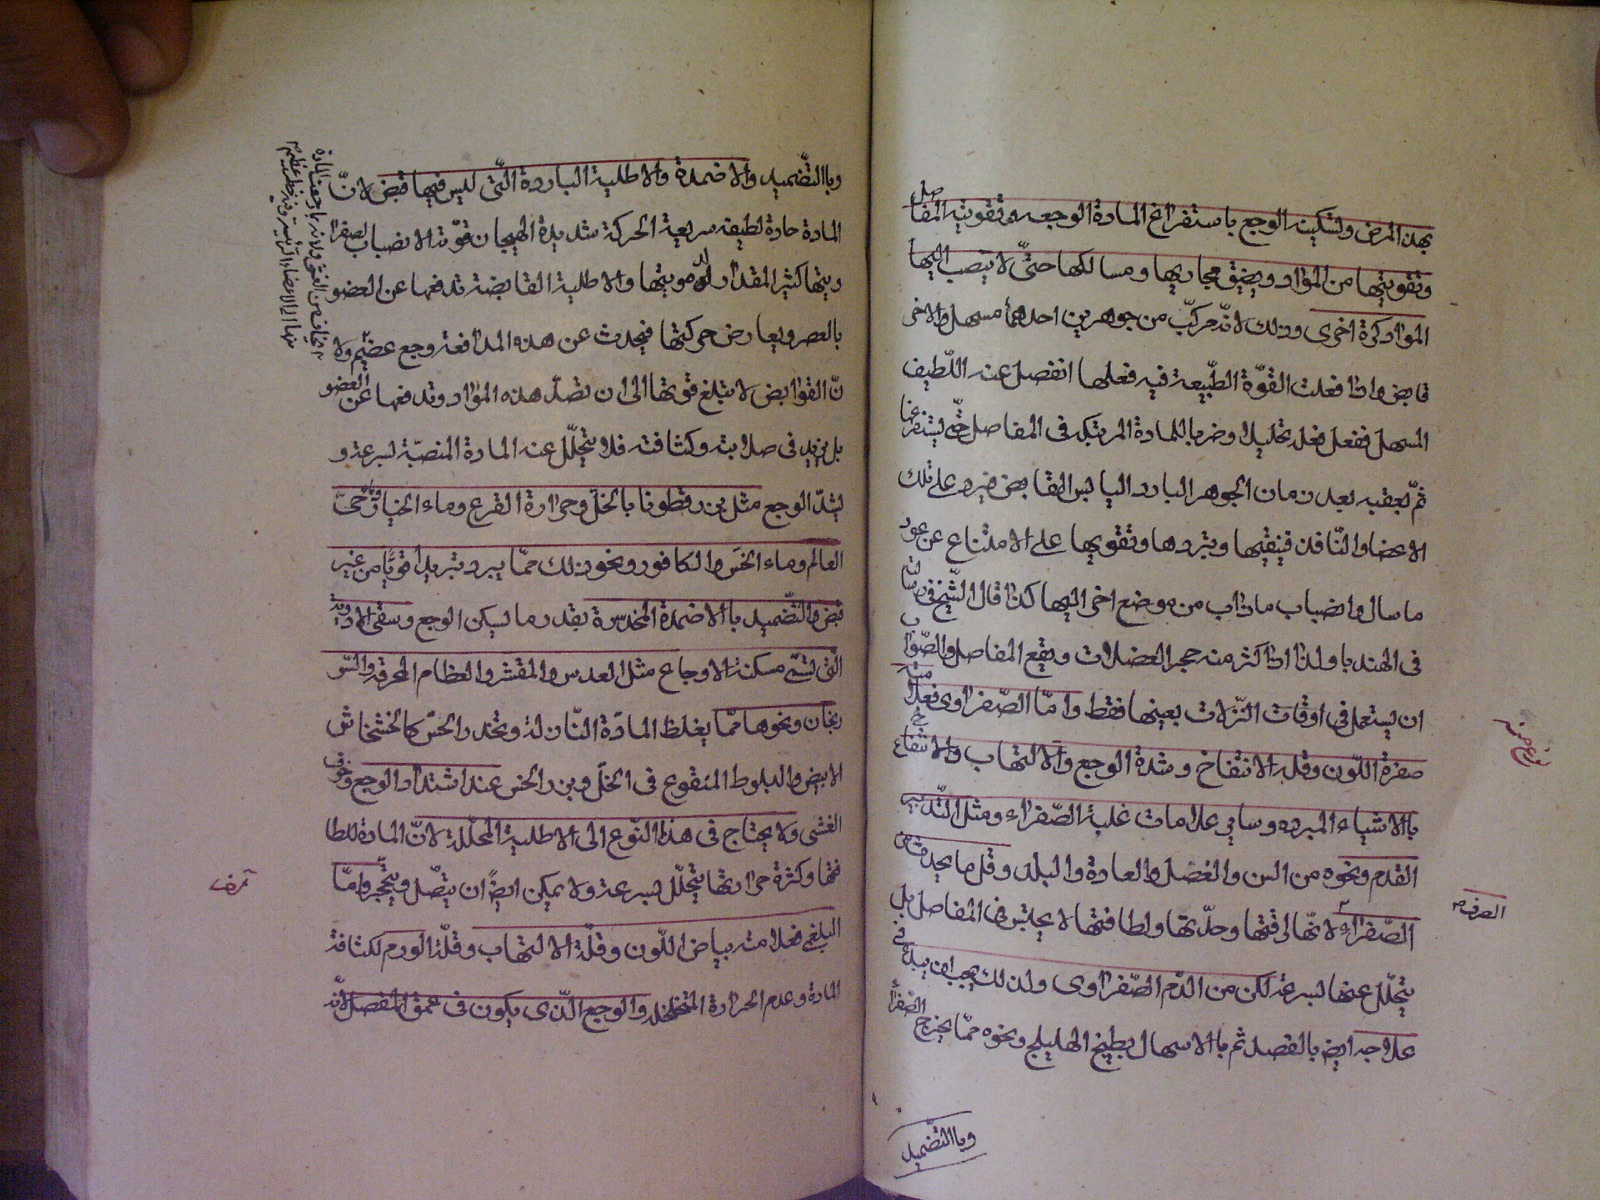 بهذا المرض ولتسكينه الوجع باستفراغ المادة الوجعه وتقويته المفاصل
وتقويتها من المواد ويضيق مجاريها ومسالكها حتّى لا ينصب اليها
المواد كرة اخرى وذلك لانّه مركّب من جوهرين احدهما مسهل والاخر
قابض واذا فعلت القوّة الطّبيعة فيه فعلها انفصل عنه اللّطيف
المسهل ففعل فعله تحليلا وضربا للمادة المرتبكة فى المفاصل حتّى يستفرغها
ثمّ يعقبه بعد زمان الجوهر البارد اليابس القابض فيرد على تلك
الاعضا والنّافذ فيقبّضها ويبرّدها وتقويها على الامتناع عن عود
ما سال وانضباب ما ذاب من موضع اخر اليها كذا قال الشّيخ فى رسالته
فى الهندبا ولذا اذا اكثر منه حجر العضلات وتعقّد المفاصل والصّواب
ان يستعمل فى اوقات النّزلات بعينها فقط وامّا الصّفراوى فعلامته
صفرة اللّون وقلة الانتفاخ وشدة الوجع والالتهاب والانتفاع
بالاشياء المبرده وساير علامات غلبة الصّفراء ومثل التّدبير
القدم ونحوه من السن والفصل والعادة والبلد وقل ما يحدث من
الصّفراء لانّها لرقّتها وحدّتها ولطافتها لا يحتبس فى المفاصل بل
يتحلّل عنها لبسرعة لكن من الدّم الصّفراوى ولذلك يجب ان يبدء فى
علاجه ايضا بالفصد ثم بالاسهال بطبيخ الهليلج ونحوه ممّا يخرج الصّفرا
وباالتّضميد
الصرف
وباالتّضميد والاضمدة والاطلية الباردة الّتى ليس فيها قبض لانّ
المادة حادة لطيفة سريعة الحركة شديدة الهيجان قوّته الانضباب لصفرا
ويتها كثير المقدار لدمويتها والاطلية القابضة تدفعها عن العضو
بالعصر ويعارض حركتها فيحدث عن هذه المدافعة وجع عظيم ولا
نّ القوابض لا يبلغ قوتها الى ان تصدّ هذه المواد وتدفعها عن العضو
بل يزيد فى صلابته وكثافته فلا يتحلّل عنه المادة المنصبّة لسرعة و
يشدّ الوجع مثل بزرقطونا بالخلّ وجرادة القرع وماء الخيار وحىّ
العالم وماء الخسّ والكافور ونحو ذلك ممّا يبرد تبريدا قويّا من غير
قبض والتّضميد باالاضمدة المخدرة بقدر ما يسكن الوجع وسقى الادوية
الّتى تسمّى مسكنة الاوجاع مثل العدس والمقشر والعظام المحرقة والسّو
رنجان ونحوها ممّا يغلظ المادّة النّازلة وتخدر الحسّ كالخشخاش
الابيض والبلوط المنقوع فى الخلّ وبزر الخس عند اشتداد الوجع وخوف
الغشى ولا يحتاج فى هذا النّوع الى الاطلية المحلّلة لانّ المادة للطا
فتها وكثرة حرارتها يتحلّل لبسرعة ولا يمكن ايضا ان يتصّل ويتحجّر وامّا
البلغمى فعلامته بياض اللّون وقلّة الالتهاب وقلّة الورم لكثافة
المادة وعدم الحرارة المتخلخلة والوجع الّذى يكون فى عمق المفصل لانّه